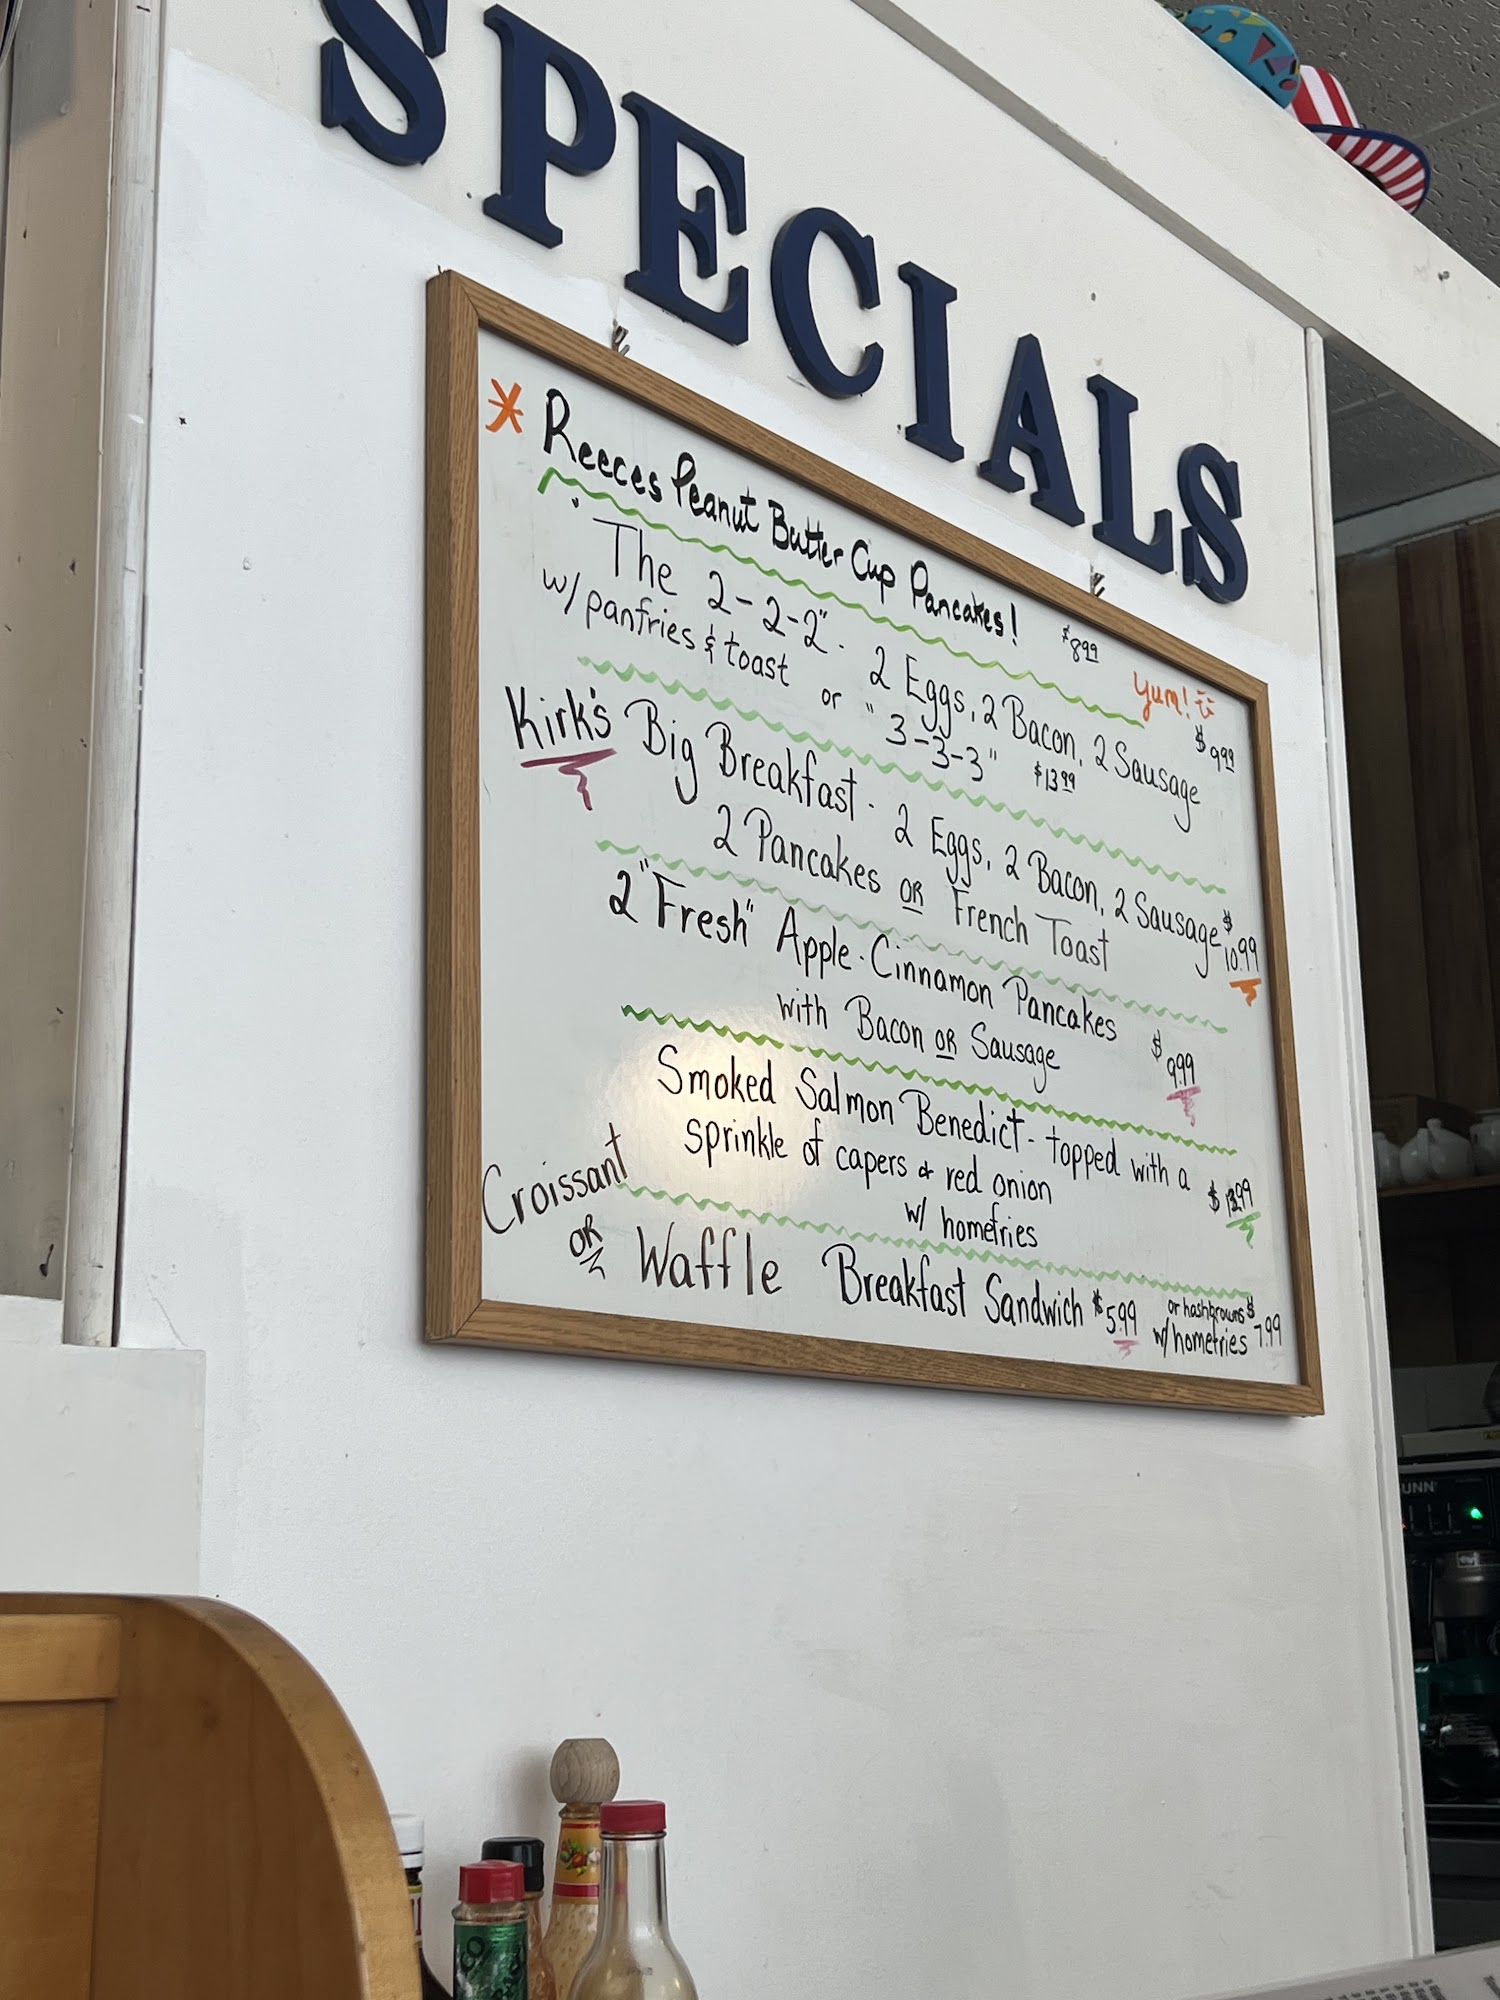 SPECIALS
* Reeces Peanut Butter Cup Pancakes! $8.99 Yum!
"The 2-2-2" - 2 Eggs, 2 Bacon, 2 Sausage $9.99
w/ panfries & toast or "3-3-3" $13.99
Kirk's Big Breakfast - 2 Eggs, 2 Bacon, 2 Sausage $10.99
2 Pancakes OR French Toast
2 "Fresh" Apple-Cinnamon Pancakes $9.99
with Bacon OR Sausage
Smoked Salmon Benedict - topped with a
sprinkle of capers & red onion
w/ homefries
Croissant
OR Waffle Breakfast Sandwich $5.99 or hashbrowns $7.99
w/ homefries
UNN